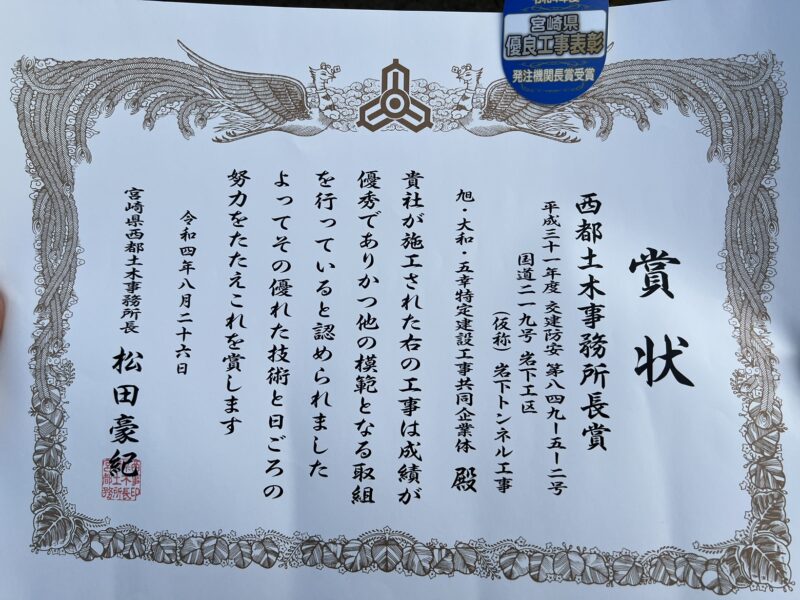 宮崎県
優良工事表彰
発注機関長賞受賞
賞状
西都土木事務所長賞
平成三十一年度 交建防安 第八四九ー五ー二号
国道二一九号 岩下工区
(仮称)岩下トンネル工事
旭・大和・五幸特定建設工事共同企業体 殿
貴社が施工された右の工事は成績が
優秀でありかつ他の模範となる取組
を行っていると認められました
よってその優れた技術と日ごろの
努力をたたえこれを賞します
令和四年八月二十六日
宮崎県西都土木事務所長 松田豪紀